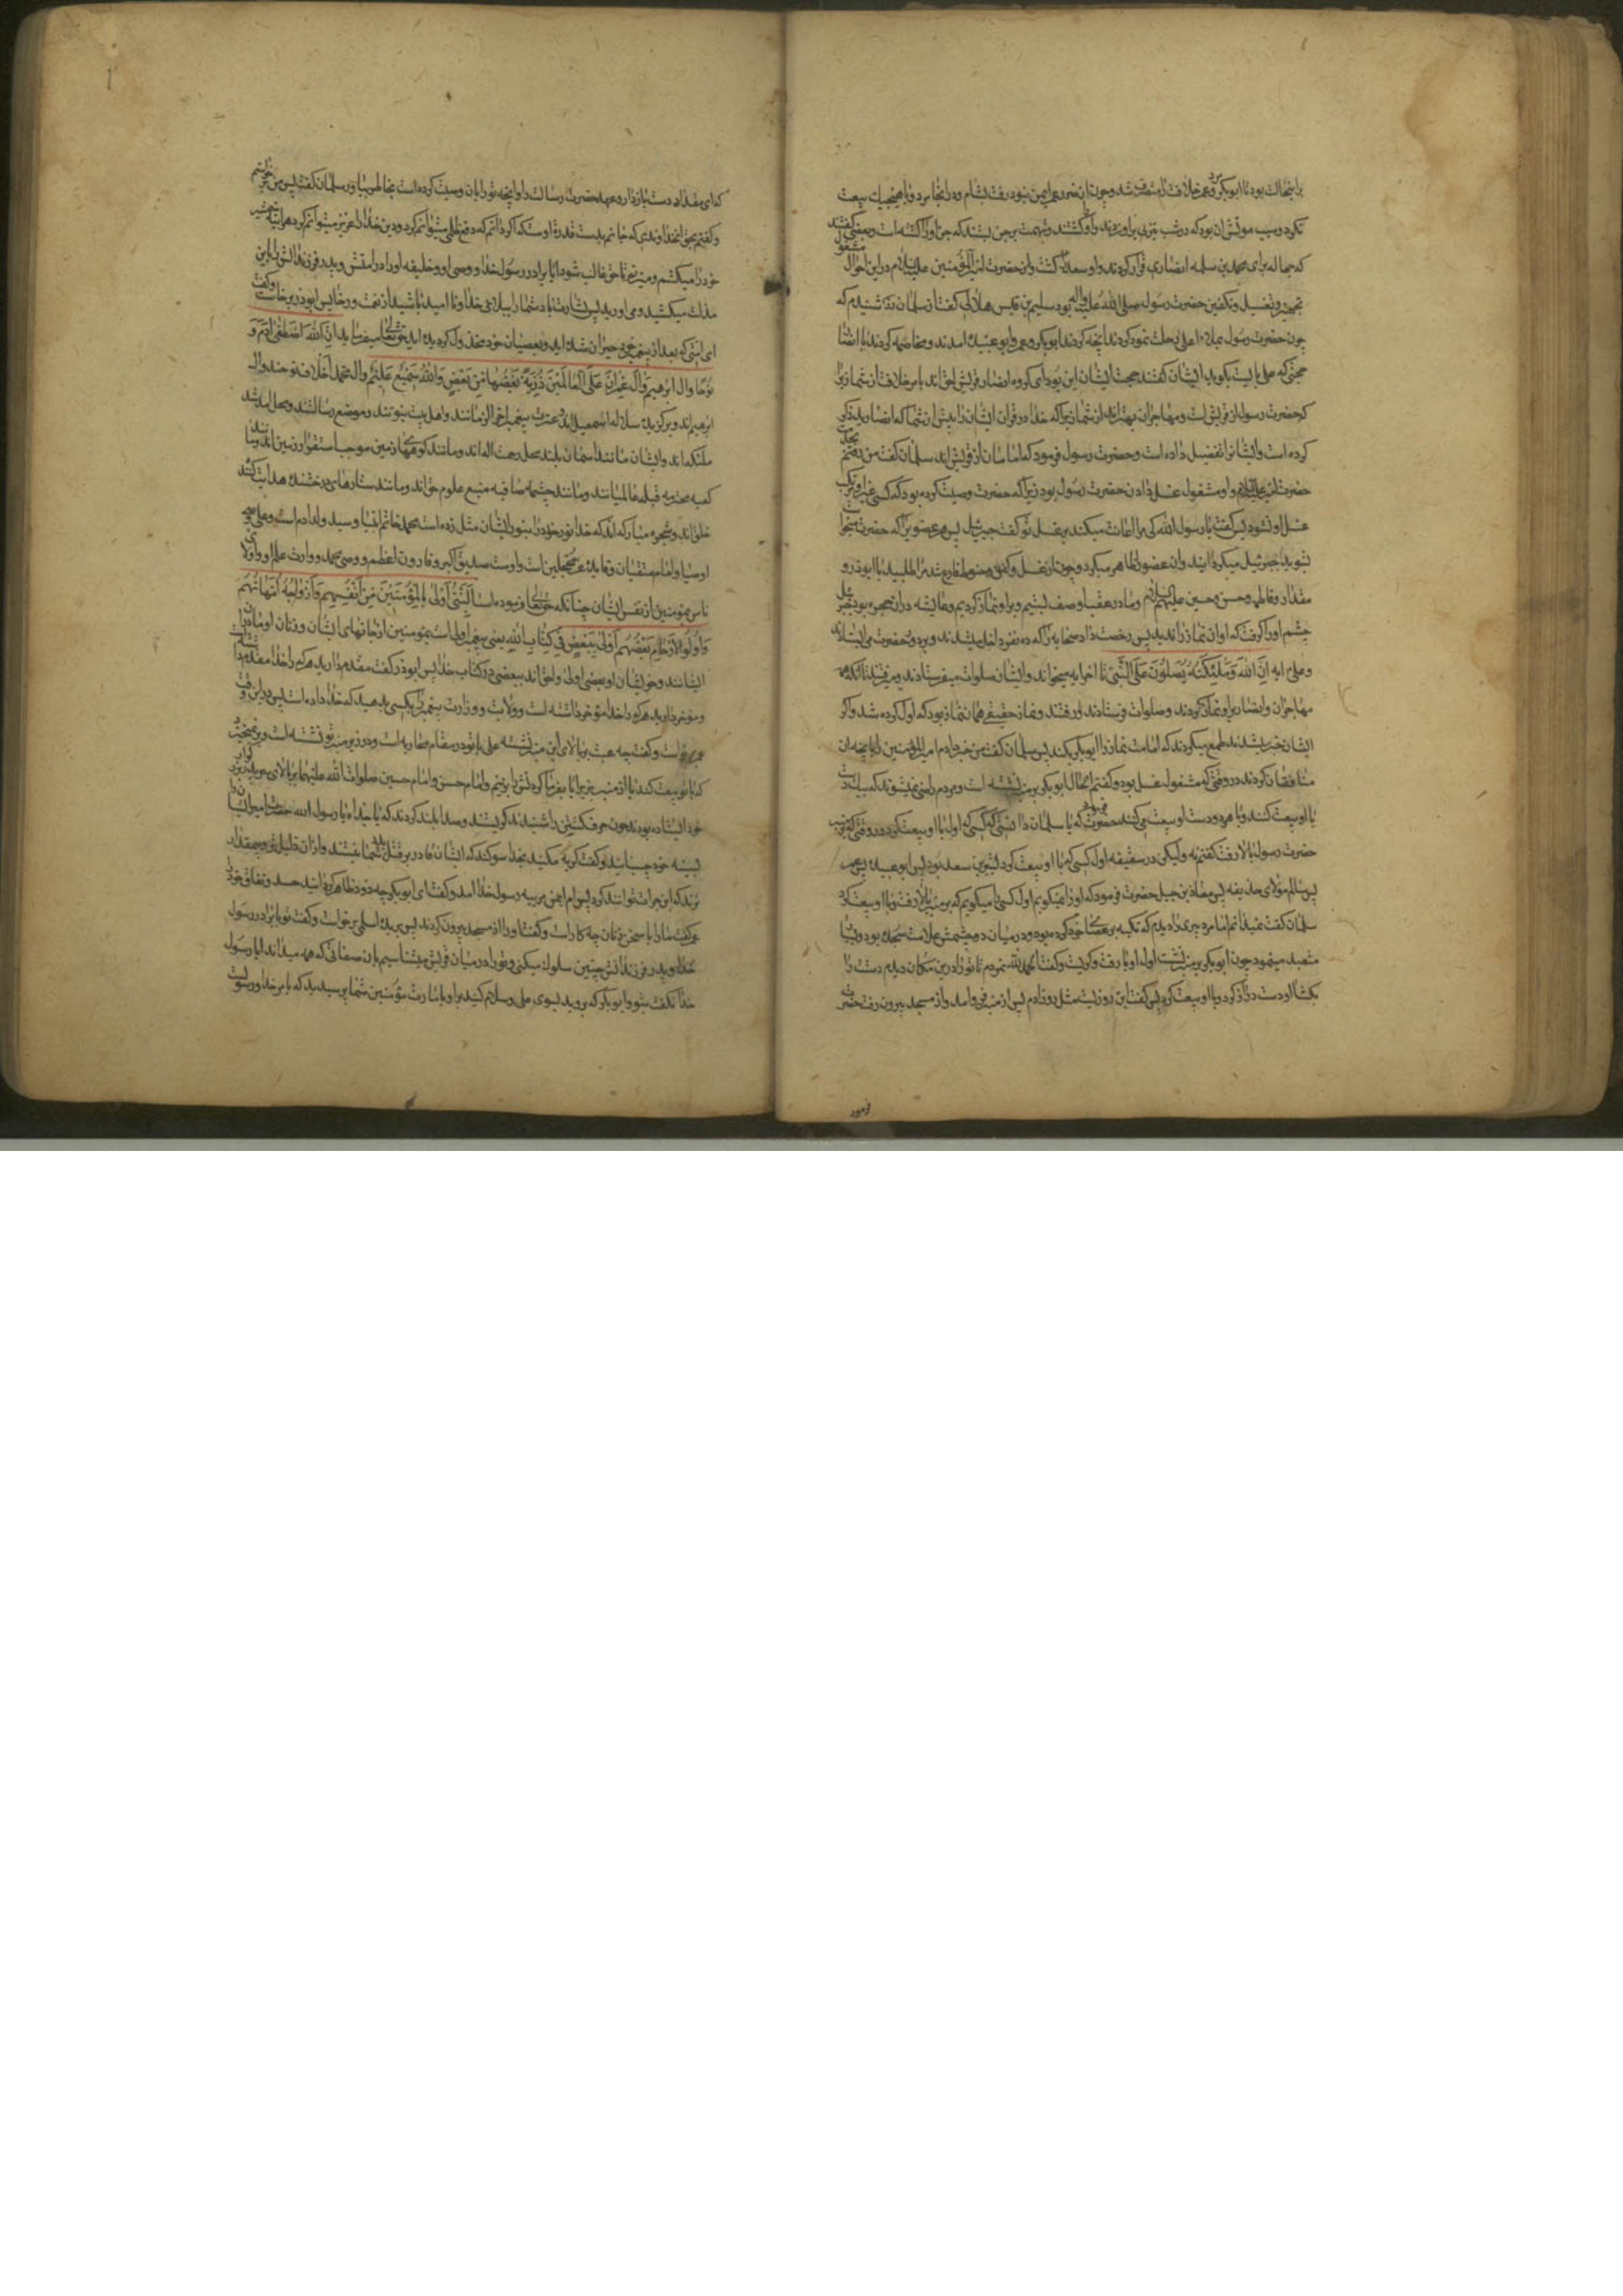 برا نیحالت بود تا ابوبکر و عمر خلافت را متصرف شدند و چون از ضرر عمر ایمن نبود رفت بشام و در انجا مرد و با هیچیک بیعت
نکرد و سبب موتش ان بود که در شب تیری براو زدند و او را کشتند و تهمت بر جن بستند که جن او را کشته است و بعضی گفتند
که جعاله برای محمد بن سلمه انصاری قرار کردند و او سعد را کشت و ان حضرت امیر المؤمنین علیه السلام در این احوال مشغول
تجهیز و تغسیل و تکفین حضرت رسول صلی الله علیه و اله بود سلیم بن قیس هلالی گفت از سلمان شنیدم که
چون حضرت رسول بملاء اعلی رحلت نمود کردند انچه کردند ابوبکر و عمر و ابو عبیده امدند و مخاصمه کردند با انصار
حجتی که علی بایست بگوید ایشان گفتند حجت ایشان این بود ای کروه انصار قریش احق اند بامر خلافت از شما زیرا
که حضرت رسول از قریش است و مهاجران بهترند از شما زیرا که خدا در قران ایشان را پیش از شما که انصارید ذکر
کرده است و ایشانرا تفضیل داده است و حضرت رسول فرمود که امامان از قریش اند سلمان گفت من رفتم بخدمت
حضرت امیر علیه السلام و او مشغول غسل دادن حضرت رسول بود زیرا که حضرت وصیت کرده بود که کسی غیر او مرتکب
غسل او نشود پس گفت یا رسول الله کی مرا اعانت میکند بر غسل تو گفت جبرئیل پس هر عضویرا که حضرت میخواست
بشوید جبرئیل میکردانید و ان عضو را ظاهر میکرد و چون از غسل و کفن و حنوط فارغ شد مرا طلبید با ابوذر و
مقداد و فاطمه و حسن و حسین علیهم السلام و ما در عقب او صف بستیم و براو نماز کردیم و عایشه در ان حجره بود جبرئیل
چشم او را گرفت که او ان نماز را ندید پس رخصت داد صحابه را که ده نفر ده نفر داخل میشدند و بر دور حضرت می ایستادند
و علی ایه ان الله و ملئکته یصلون علی النبی تا اخر ایه میخواند و ایشان صلوات میفرستادند و میرفتند تا انکه همه
مهاجران و انصار براو نماز کردند و صلوات فرستادند و رفتند و نماز حقیقی همان نماز بود که اول کرده شد و اگر
ایشان خبر میشدند طمع میکردند که امامت نماز را ابوبکر بکند پس سلمان گفت من خبر دادم امیر المؤمنین را بانچه ان
منافقان کردند در وقتی که مشغول غسل بود و گفتم الحال ابوبکر بر منبر نشسته است و مردم راضی نمیشوند که بیک دست
با او بیعت کنند و با هر دو دست او بیعت میکنند حضرت فرمود که یا سلمان دانستی که کسی که اول با او بیعت کرد در وقتی که بر منبر
حضرت رسول بالا رفت گفتم نه ولیکن در سقیفه اول کسی که با او بیعت کرد بشیر بن سعد بود پس ابو عبیده پس عمر
پس سالم مولای حذیفه پس معاذ بن جبل حضرت فرمود که اورا نمیگویم اول کسی را میگویم که بر منبر بالا رفت و با او بیعت کرد
سلمان گفت نمیدانم اما مرد پیری را دیدم که تکیه بر عصا خود کرده بود و در میان دو چشمش علامت سجده بود و بسیار
متعبد مینمود چون ابوبکر بر منبر نشست اول او بالا رفت و گریست و گفت الحمد لله نمردم تا تو را در این مکان دیدم دست را
بگشا او دست دراز کرد و با او بیعت کرد پس گفت این روزیست مثل روز ادم پس از منبر فرو امد و از مسجد بیرون رفت حضرت
فرمود
که ای مقداد دست بازدار و عهد حضرت رسالت را و انچه تو را بان وصیت کرده است بخاطر بیاور سلمان گفت پس من برخواستم
و گفتم بحق انخداوندی که جانم بدست قدرة اوست که اگر دانم که دفع ظلمی میتوانم کرد و دین خدا را عزیز میتوانم کرد هر اینه شمشیر
خود را میکشم و میزنم تا حق غالب شود ایا برادر رسول خدا و وصی او و خلیفه او را در امتش و پدر فرزندانش را باین
مذلت میکشید و می اورید پس بشارت باد شما را ببلای خدا و نا امید باشید از نعمت و رخا پس ابوذر برخاست و گفت
ای امتی که بعد از پیغمبر خود حیران شده اید و بعصیان خود مخذول گردیده اید حق تعالی میفرماید ان الله اصطفی ادم و
نوحا وال ابرهیم وال عمران علی العالمین ذریة بعضها من بعض والله سمیع علیم وال محمد اخلاف نوحند و ال
ابرهیم اند و برگزیده سلاله اسمعیل اند و عترت پیغمبر اخر الزمانند و اهل بیت نبوتند و موضع رسالتند و محل امد شد
ملئکه اند و ایشان مانند اسمان بلند محل رحمت اله اند و مانند کوهها زمین موجب استقرار زمین اند و مانند
کعبه محترمه قبله عالمیانند و مانند چشمه صافیه منبع علوم حق اند و مانند ستارهای درخشنده هدایت کننده
خلق اند و شجره مبارکه اند که خدا نور خود را بنور ایشان مثل زده است محمد خاتم انبیا و سید ولد ادم است و علی وصی
اوصیا و امام متقیان و قاید غر محجلین است و اوست صدیق اکبر و فاروق اعظم و وصی محمد و وارث علم او و اولای
ناس بمؤمنین از نفس ایشان چنانکه حق تعالی فرموده است النبی اولی بالمؤمنین من انفسهم وازواجه امهاتهم
واولوا الارحام بعضهم اولی ببعض فی کتاب الله یعنی پیغمبر اولی است بمؤمنین از جانهای ایشان و زنان او مادران
ایشانند و خویشان او بعضی اولی و احق اند ببعضی در کتاب خدا پس ابوذر گفت مقدم دارید هر که را خدا مقدم داشته است
و مؤخر دارید هر که را خدا مؤخر داشته است و ولایت و وزارت پیغمبر را بکسی بدهید که خدا داده است پس در این وقت
عمر برخواست و گفت چه عبث بر بالای این منبر نشسته علی با تو در مقام محاربه است و در زیر منبر تو نشسته است و برنمیخیزد
که با تو بیعت کند یا از منبر بزیر ایا بفرما که گردنش را بزنیم و امام حسن و امام حسین صلوات الله علیهما بر بالای سر پدر بزرگوار
خود ایستاده بودند چون حرف کشتن را شنیدند گریستند و صدا بلند کردند که یا جداه یا رسول الله حضرت امیر ایشان را
بسینه خود چسبانید و گفت گریه مکنید بخدا سوگند که ایشان قادر بر قتل پدر شما نیستند و ازان ذلیل تر و بیمقدار
ترند که این جرات توانند کرد پس ام ایمن مربیه رسول خدا امد و گفت ای ابوبکر چه زود ظاهر گردانیدید حسد و نفاق خود را
عمر گفت ما را با سخن زنان چه کار است و گفت او را از مسجد بیرون کردند پس بریده اسلمی برخواست و گفت تو با برادر رسول
خدا و پدر فرزندانش چنین سلوک میکنی و تو را در میان قریش میشناسیم بان صفاتی که همه میدانند ایا رسول
خدا نگفت بتو و ابوبکر که بروید بسوی علی و سلام کنید براو بامارت مؤمنین شما پرسیدید که بامر خدا و رسولست